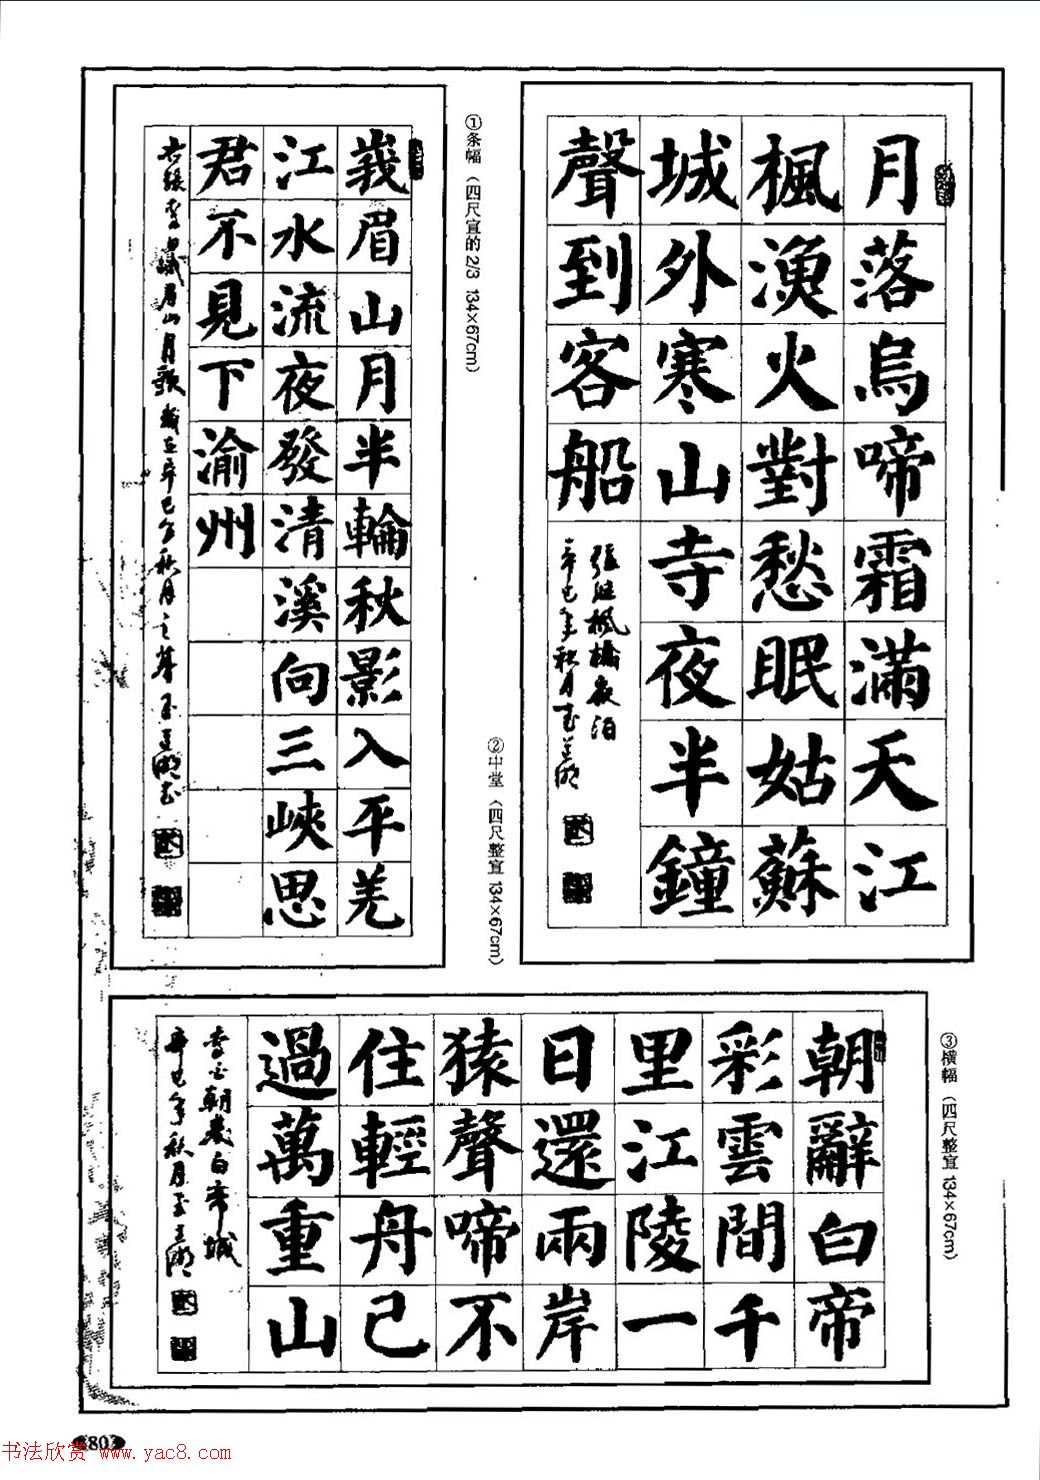 月落烏啼霜滿天江
楓漁火對愁眠姑蘇
城外寒山寺夜半鐘
聲到客船
張繼楓橋夜泊
辛巳年秋月
②中堂（四尺整宣 134×67cm）
①条幅（四尺宣的2/3 134×67cm）
峩眉山月半輪秋影入平羌
江水流夜發清溪向三峽思
君不見下渝州
右錄李白峨眉山月歌歲在辛巳年秋月之
③横幅（四尺整宣 134×67cm）
朝辭白帝
彩雲間千
里江陵一
日還兩岸
猿聲啼不
住輕舟已
過萬重山
李白朝發白帝城
辛巳年秋月
书法欣赏 www.yac8.com